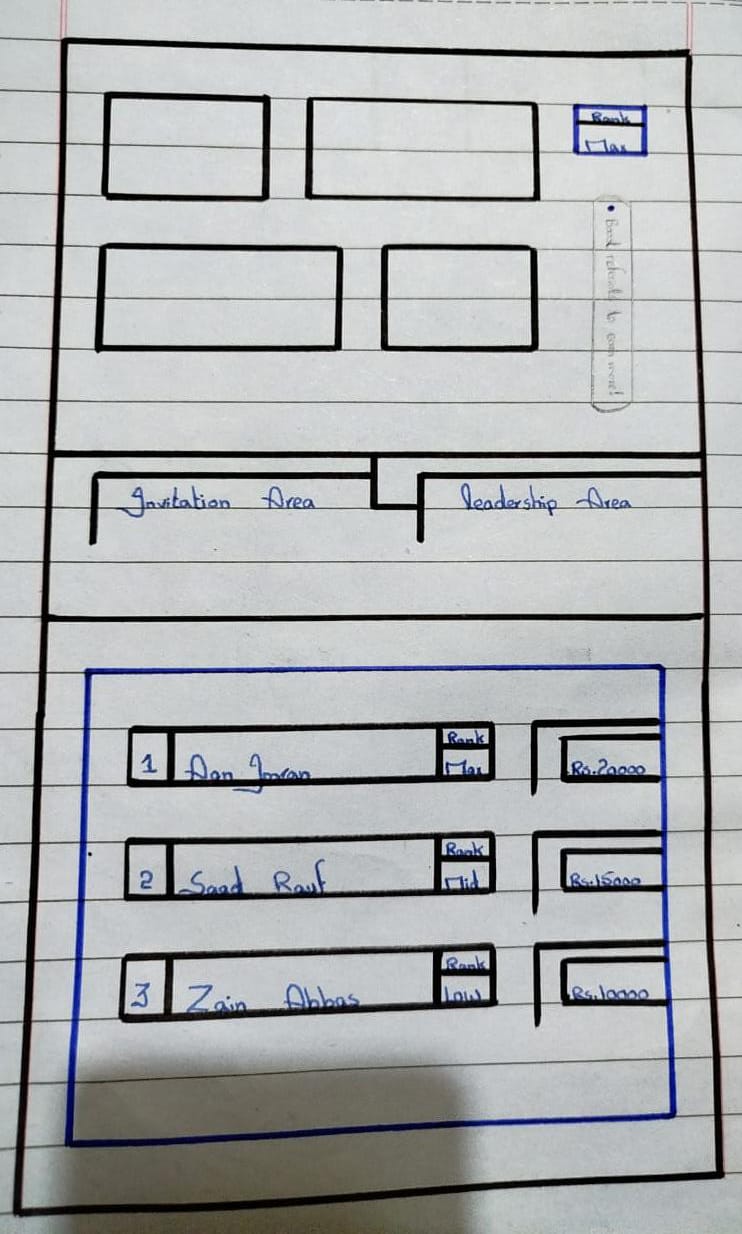 Rank
Max
• Boost referals to earn more!
Invitation Area
leadership Area
1 Aon Imran Rank Max Rs.20000
2 Saad Rauf Rank Mid Rs.15000
3 Zain Abbas Rank Low Rs.10000